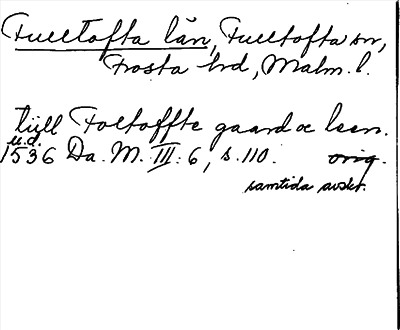 Fulltofta län, Fulltofta sn,
Frosta hrd, Malm. l.
till Foltoffte gaard oc leen.
u.d.
1536 Da. M. III: 6, s. 110. orig.
samtida avskr.